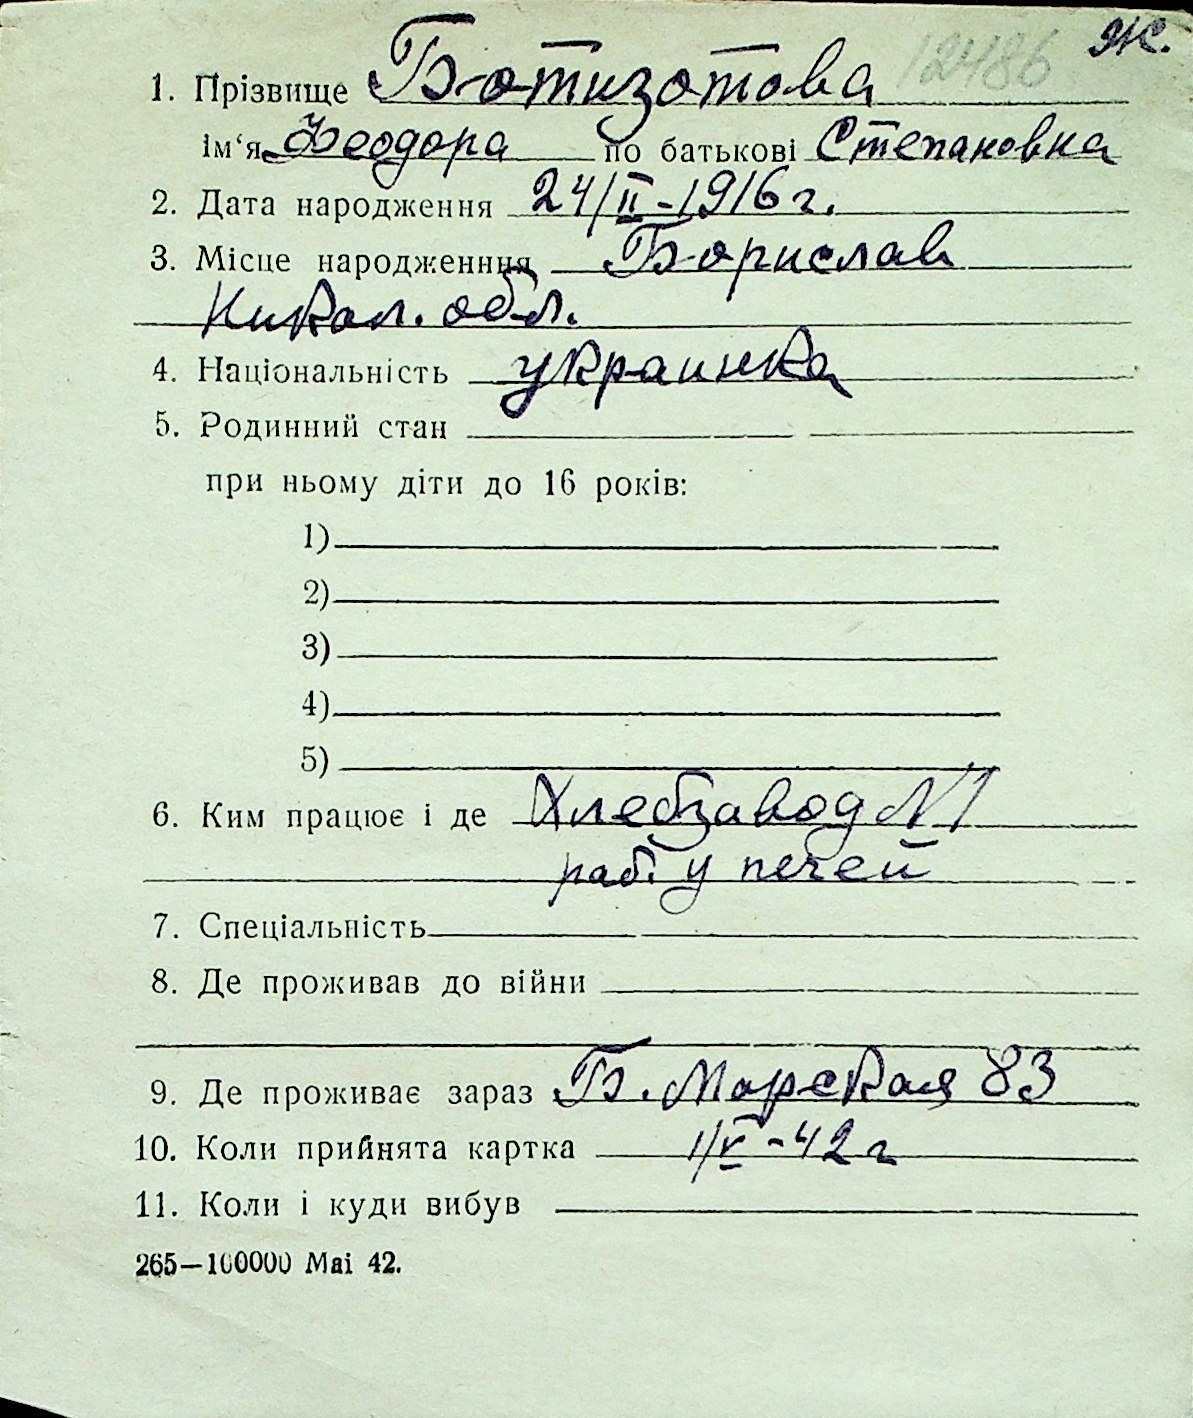 12486 Ж.
1. Прізвище Ботизотова
ім‘я Феодора по батькові Степановна
2. Дата народження 24/II-1916 г.
3. Місце народженння Борислав
Никол. обл.
4. Національність украинка
5. Родинний стан
при ньому діти до 16 років:
1)
2)
3)
4)
5)
6. Ким працює і де Хлебзавод N1
раб. у печей
7. Спеціальність
8. Де проживав до війни
9. Де проживає зараз Б. Морская 83
10. Коли прийнята картка 1/V-42 г
11. Коли і куди вибув
265—100000 Mai 42.